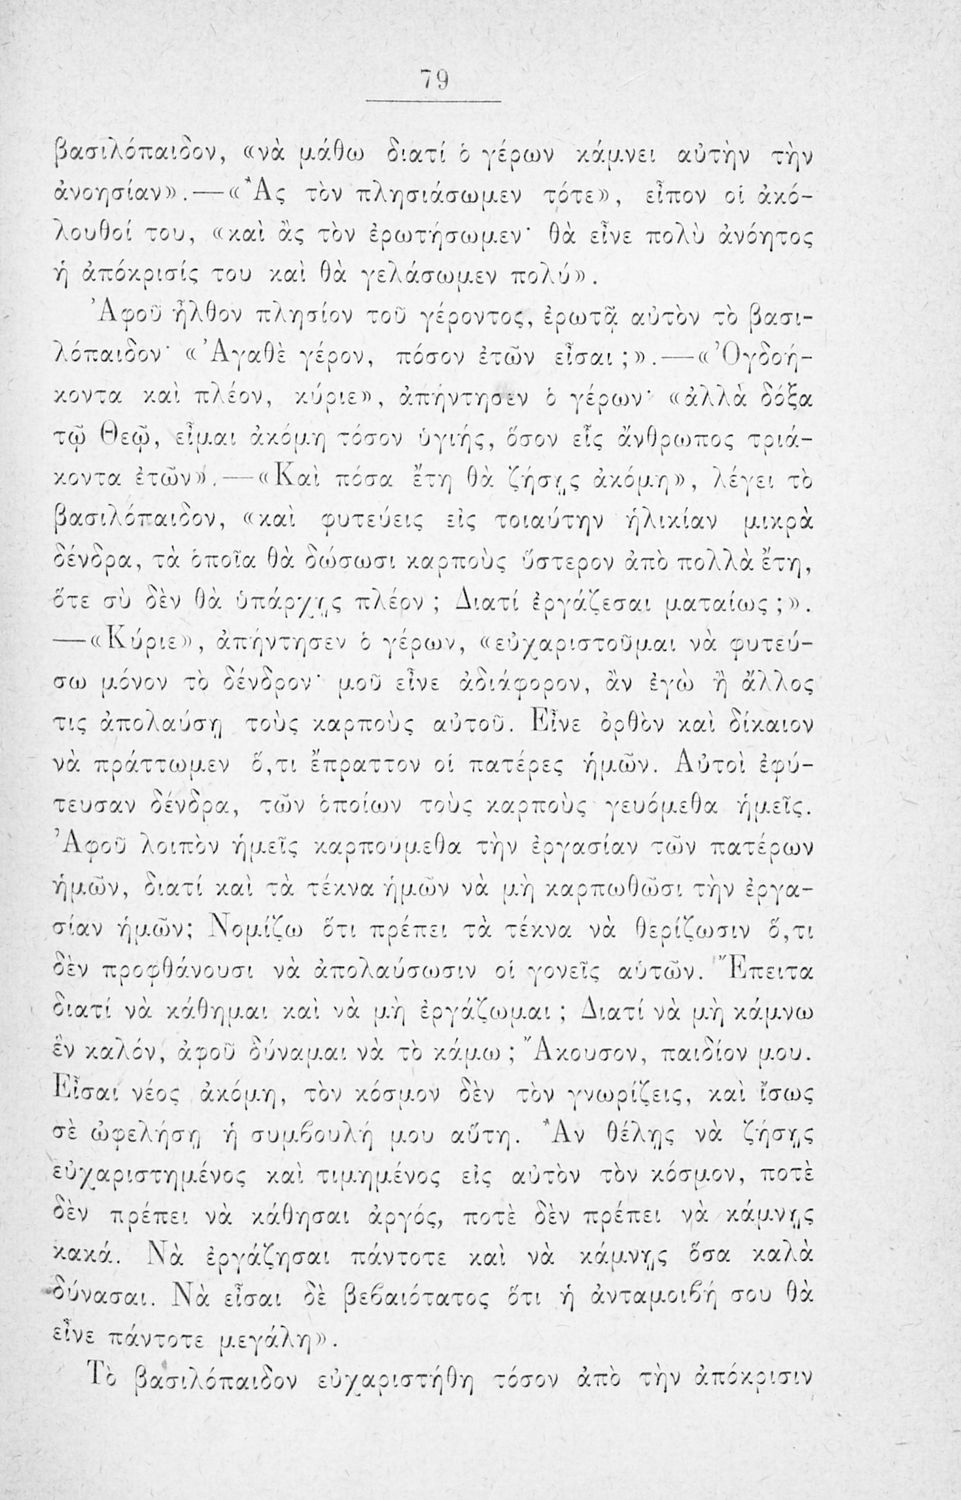 79
βασιλόπαιδον, «νὰ μάθω διατί ὁ γέρων κάμνει αὐτὴν τὴν
ἀνοησίαν».—«Ἂς τὸν πλησιάσωμεν τότε», εἶπον οἱ ἀκό-
λουθοί του, «καὶ ἂς τὸν ἐρωτήσωμεν· θὰ εἶνε πολὺ ἀνόητος
ἡ ἀπόκρισίς του καὶ θὰ γελάσωμεν πολύ».
Ἀφοῦ ἦλθον πλησίον τοῦ γέροντος, ἐρωτᾷ αὐτὸν τὸ βασι-
λόπαιδον· «Ἀγαθὲ γέρον, πόσον ἐτῶν εἶσαι;».—«Ὀγδοή-
κοντα καὶ πλέον, κύριε», ἀπήντησεν ὁ γέρων· «ἀλλὰ δόξα
τῷ Θεῷ, εἶμαι ἀκόμη τόσον ὑγιής, ὅσον εἷς ἄνθρωπος τριά-
κοντα ἐτῶν».—«Καὶ πόσα ἔτη θὰ ζήσῃς ἀκόμη», λέγει τὸ
βασιλόπαιδον, «καὶ φυτεύεις εἰς τοιαύτην ἡλικίαν μικρὰ
δένδρα, τὰ ὁποῖα θὰ δώσωσι καρποὺς ὕστερον ἀπὸ πολλὰ ἔτη,
ὅτε σὺ δὲν θὰ ὑπάρχῃς πλέον; Διατί ἐργάζεσαι ματαίως;».
—«Κύριε», ἀπήντησεν ὁ γέρων, «εὐχαριστοῦμαι νὰ φυτεύ-
σω μόνον τὸ δένδρον· μοῦ εἶνε ἀδιάφορον, ἂν ἐγὼ ἢ ἄλλος
τις ἀπολαύσῃ τοὺς καρποὺς αὐτοῦ. Εἶνε ὀρθὸν καὶ δίκαιον
νὰ πράττωμεν ὅ,τι ἔπραττον οἱ πατέρες ἡμῶν. Αὐτοὶ ἐφύ-
τευσαν δένδρα, τῶν ὁποίων τοὺς καρποὺς γευόμεθα ἡμεῖς.
Ἀφοῦ λοιπὸν ἡμεῖς καρπούμεθα τὴν ἐργασίαν τῶν πατέρων
ἡμῶν, διατί καὶ τὰ τέκνα ἡμῶν νὰ μὴ καρπωθῶσι τὴν ἐργα-
σίαν ἡμῶν; Νομίζω ὅτι πρέπει τὰ τέκνα νὰ θερίζωσιν ὅ,τι
δὲν προφθάνουσι νὰ ἀπολαύσωσιν οἱ γονεῖς αὑτῶν. Ἔπειτα
διατί νὰ κάθημαι καὶ νὰ μὴ ἐργάζωμαι; Διατί νὰ μὴ κάμνω
ἓν καλόν, ἀφοῦ δύναμαι νὰ τὸ κάμω; Ἄκουσον, παιδίον μου.
Εἶσαι νέος ἀκόμη, τὸν κόσμον δὲν τὸν γνωρίζεις, καὶ ἴσως
σὲ ὠφελήσῃ ἡ συμβουλή μου αὕτη. Ἂν θέλῃς νὰ ζήσῃς
εὐχαριστημένος καὶ τιμημένος εἰς αὐτὸν τὸν κόσμον, ποτὲ
δὲν πρέπει νὰ κάθησαι ἀργός, ποτὲ δὲν πρέπει νὰ κάμνῃς
κακά. Νὰ ἐργάζησαι πάντοτε καὶ νὰ κάμνῃς ὅσα καλὰ
δύνασαι. Νὰ εἶσαι δὲ βεβαιότατος ὅτι ἡ ἀνταμοιβή σου θὰ
εἶνε πάντοτε μεγάλη».
Τὸ βασιλόπαιδον εὐχαριστήθη τόσον ἀπὸ τὴν ἀπόκρισιν